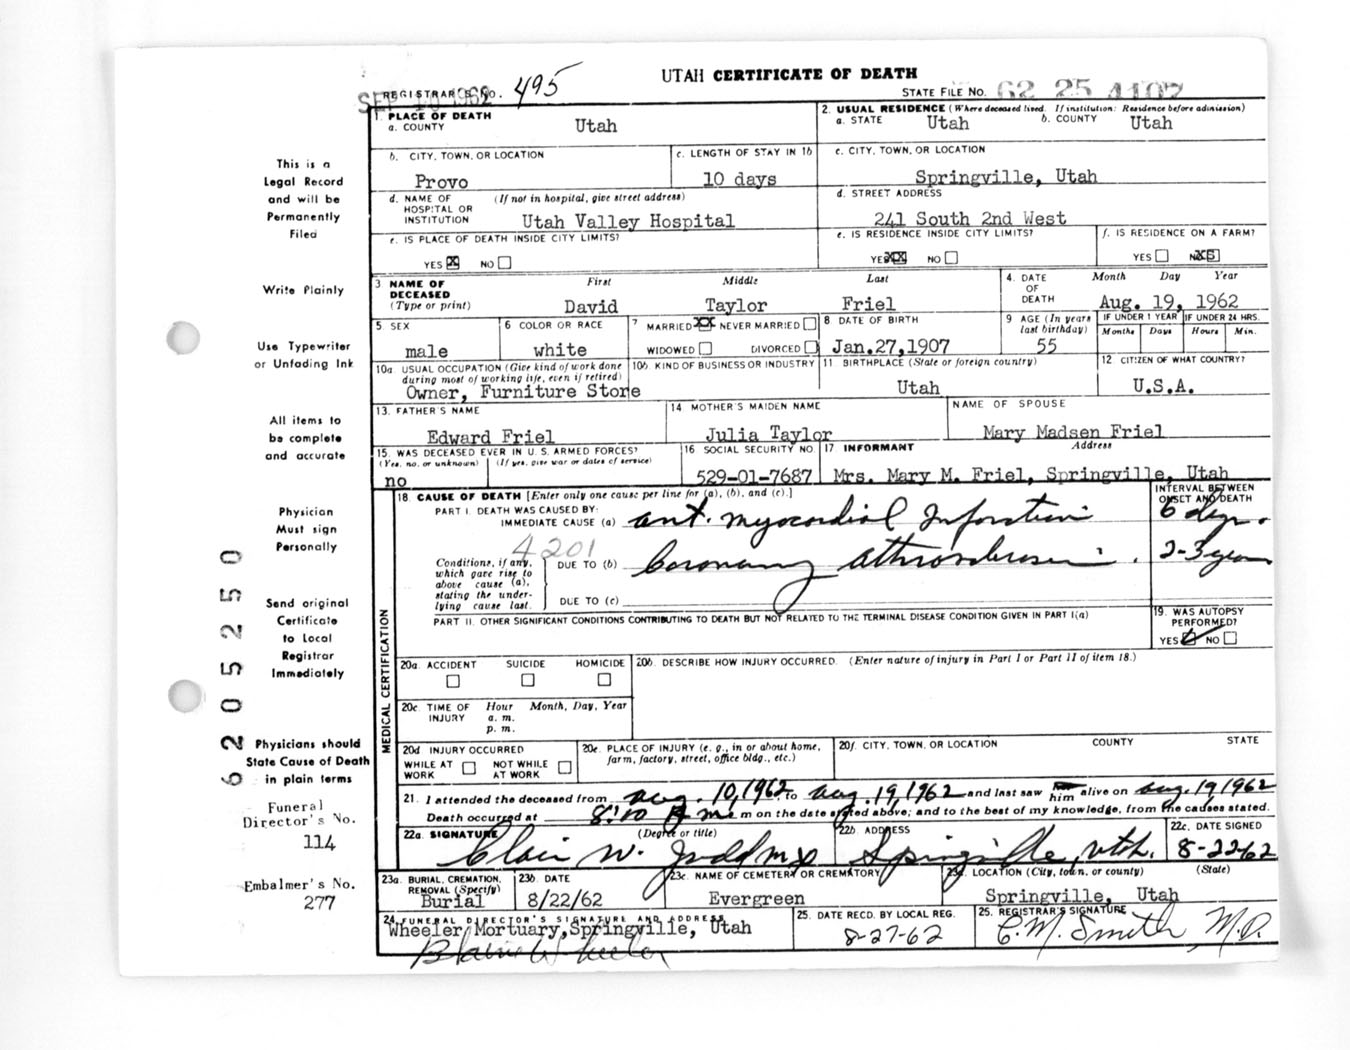 UTAH CERTIFICATE OF DEATH
REGISTRAR'S No. 495
SEP 10 1962
STATE FILE NO. 62 25
1. PLACE OF DEATH
a. COUNTY Utah
2. USUAL RESIDENCE (Where deceased lived. If institution: Residence before admission)
a. STATE Utah b. COUNTY Utah
b. CITY, TOWN, OR LOCATION Provo
c. LENGTH OF STAY IN 1b 10 days
c. CITY, TOWN, OR LOCATION Springville, Utah
d. NAME OF HOSPITAL OR INSTITUTION (If not in hospital, give street address) Utah Valley Hospital
d. STREET ADDRESS 241 South 2nd West
e. IS PLACE OF DEATH INSIDE CITY LIMITS? YES X NO
e. IS RESIDENCE INSIDE CITY LIMITS? YES XX NO
f. IS RESIDENCE ON A FARM? YES NO
3 NAME OF DECEASED (Type or print)
First Middle Last
David Taylor Friel
4. DATE OF DEATH Month Day Year
Aug. 19, 1962
5 SEX male
6 COLOR OR RACE white
7 MARRIED XX NEVER MARRIED
WIDOWED DIVORCED
8 DATE OF BIRTH Jan.27,1907
9 AGE (In years last birthday) 55
IF UNDER 1 YEAR Months Days
IF UNDER 24 HRS. Hours Min.
10a. USUAL OCCUPATION (Give kind of work done during most of working life, even if retired)
Owner, Furniture Store
10b. KIND OF BUSINESS OR INDUSTRY
11 BIRTHPLACE (State or foreign country) Utah
12 CITIZEN OF WHAT COUNTRY? U.S.A.
13. FATHER'S NAME Edward Friel
14 MOTHER'S MAIDEN NAME Julia Taylor
NAME OF SPOUSE Mary Madsen Friel
15. WAS DECEASED EVER IN U.S. ARMED FORCES?
(Yes, no, or unknown) (If yes, give war or dates of service)
no
16 SOCIAL SECURITY NO. 529-01-7687
17 INFORMANT Address
Mrs. Mary M. Friel, Springville, Utah
18. CAUSE OF DEATH [Enter only one cause per line for (a), (b), and (c).]
INTERVAL BETWEEN ONSET AND DEATH
PART I. DEATH WAS CAUSED BY:
IMMEDIATE CAUSE (a) Ant. Myocardial Infarction 6 days.
4201
Conditions, if any, which gave rise to above cause (a), stating the underlying cause last.
DUE TO (b) Coronary 2-3 years
DUE TO (c)
PART II. OTHER SIGNIFICANT CONDITIONS CONTRIBUTING TO DEATH BUT NOT RELATED TO THE TERMINAL DISEASE CONDITION GIVEN IN PART I(a)
19. WAS AUTOPSY PERFORMED?
YES NO
20a. ACCIDENT SUICIDE HOMICIDE
20b. DESCRIBE HOW INJURY OCCURRED. (Enter nature of injury in Part I or Part II of item 18.)
20c. TIME OF INJURY Hour Month, Day, Year
a. m.
p. m.
20d INJURY OCCURRED
WHILE AT WORK NOT WHILE AT WORK
20e. PLACE OF INJURY (e. g., in or about home, farm, factory, street, office bldg., etc.)
20f. CITY, TOWN, OR LOCATION COUNTY STATE
21. I attended the deceased from Aug. 10, 1962, to Aug. 19, 1962 and last saw him alive on Aug. 19 1962
Death occurred at 8:10 A m m on the date stated above; and to the best of my knowledge, from the causes stated.
22a. SIGNATURE (Degree or title) Clair W. Judd MD
22b. ADDRESS Springville, Utah.
22c. DATE SIGNED 8-22-62
23a. BURIAL, CREMATION, REMOVAL (Specify) Burial
23b. DATE 8/22/62
23c. NAME OF CEMETERY OR CREMATORY Evergreen
23d. LOCATION (City, town, or county) (State)
Springville, Utah
24. FUNERAL DIRECTOR'S SIGNATURE AND ADDRESS
Wheeler Mortuary, Springville, Utah
Blaine W Wheeler
25. DATE RECD. BY LOCAL REG. 8-27-62
25. REGISTRAR'S SIGNATURE C.M. Smith, M.D.
MEDICAL CERTIFICATION
This is a
Legal Record
and will be
Permanently
Filed
Write Plainly
Use Typewriter
or Unfading Ink
All items to
be complete
and accurate
Physician
Must sign
Personally
Send original
Certificate
to Local
Registrar
Immediately
Physicians should
State Cause of Death
in plain terms
Funeral
Director's No.
114
Embalmer's No.
277
62052520